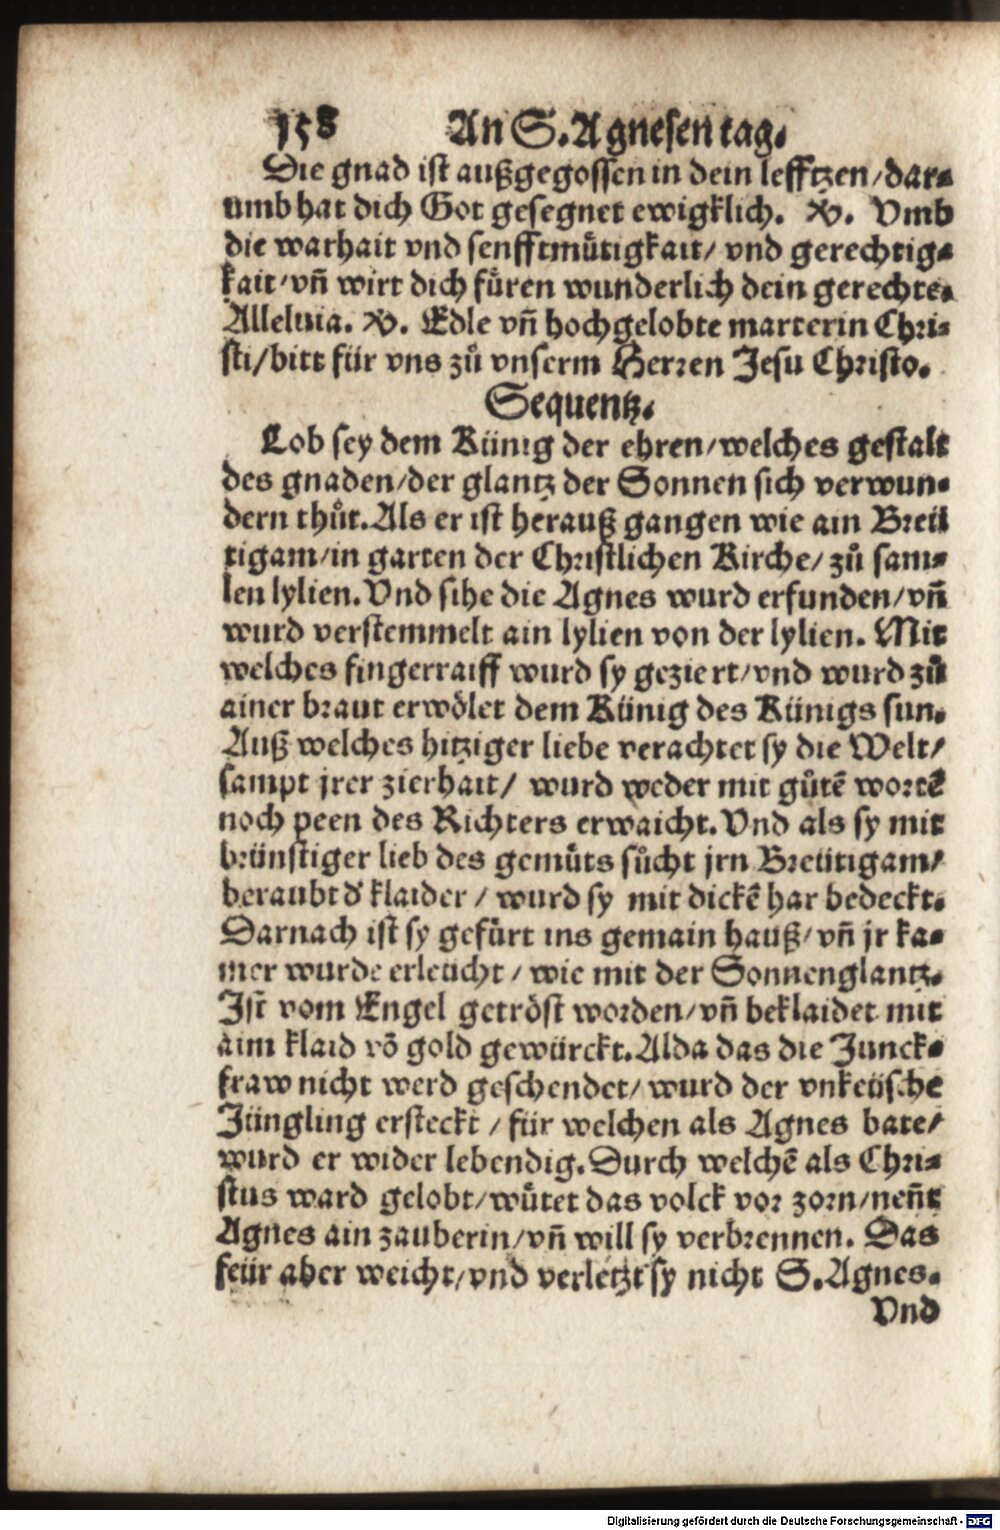 158 An S. Agnesen tag.
Die gnad ist außgegossen in dein lefftzen/dar-
umb hat dich Got gesegnet ewigklich. ℣. Vmb
die warhait vnd senfftmuͤtigkait/ vnd gerechtig-
kait/vn̄ wirt dich fuͤren wunderlich dein gerechte.
Alleluia. ℣. Edle vn̄ hochgelobte marterin Chri-
sti/bitt für vns zuͦ vnserm Herren Jesu Christo.
Sequentz.
Lob sey dem Künig der ehren/welches gestalt
des gnaden/der glantz der Sonnen sich verwun-
dern thuͦt. Als er ist herauß gangen wie ain Breü
tigam/in garten der Christlichen Kirche/ zuͦ sam-
len lylien. Vnd sihe die Agnes wurd erfunden/vn̄
wurd verstemmelt ain lylien von der lylien. Mit
welches fingerraiff wurd sy geziert/vnd wurd zuͦ
ainer braut erwoͤlet dem Künig des Künigs sun.
Auß welches hitziger liebe verachtet sy die Welt/
sampt jrer zierhait/ wurd weder mit guͦtē wortē
noch peen des Richters erwaicht. Vnd als sy mit
brünstiger lieb des gemuͤts suͦcht jrn Breütigam/
beraubt d' klaider/ wurd sy mit dickē har bedeckt.
Darnach ist sy gefuͤrt ins gemain hauß/vn̄ jr ka-
mer wurde erleucht/ wie mit der Sonnenglantz.
Ist vom Engel getroͤst worden/vn̄ beklaidet mit
aim klaid vō gold gewürckt. Alda das die Junck-
fraw nicht werd geschendet/ wurd der vnkeüsche
Jüngling ersteckt/ für welchen als Agnes bate/
wurd er wider lebendig. Durch welchē als Chri-
stus ward gelobt/wuͤtet das volck vor zorn/nen̄t
Agnes ain zauberin/vn̄ will sy verbrennen. Das
feür aber weicht/vnd verletzt sy nicht S. Agnes.
Vnd
Digitalisierung gefördert durch die Deutsche Forschungsgemeinschaft - DFG